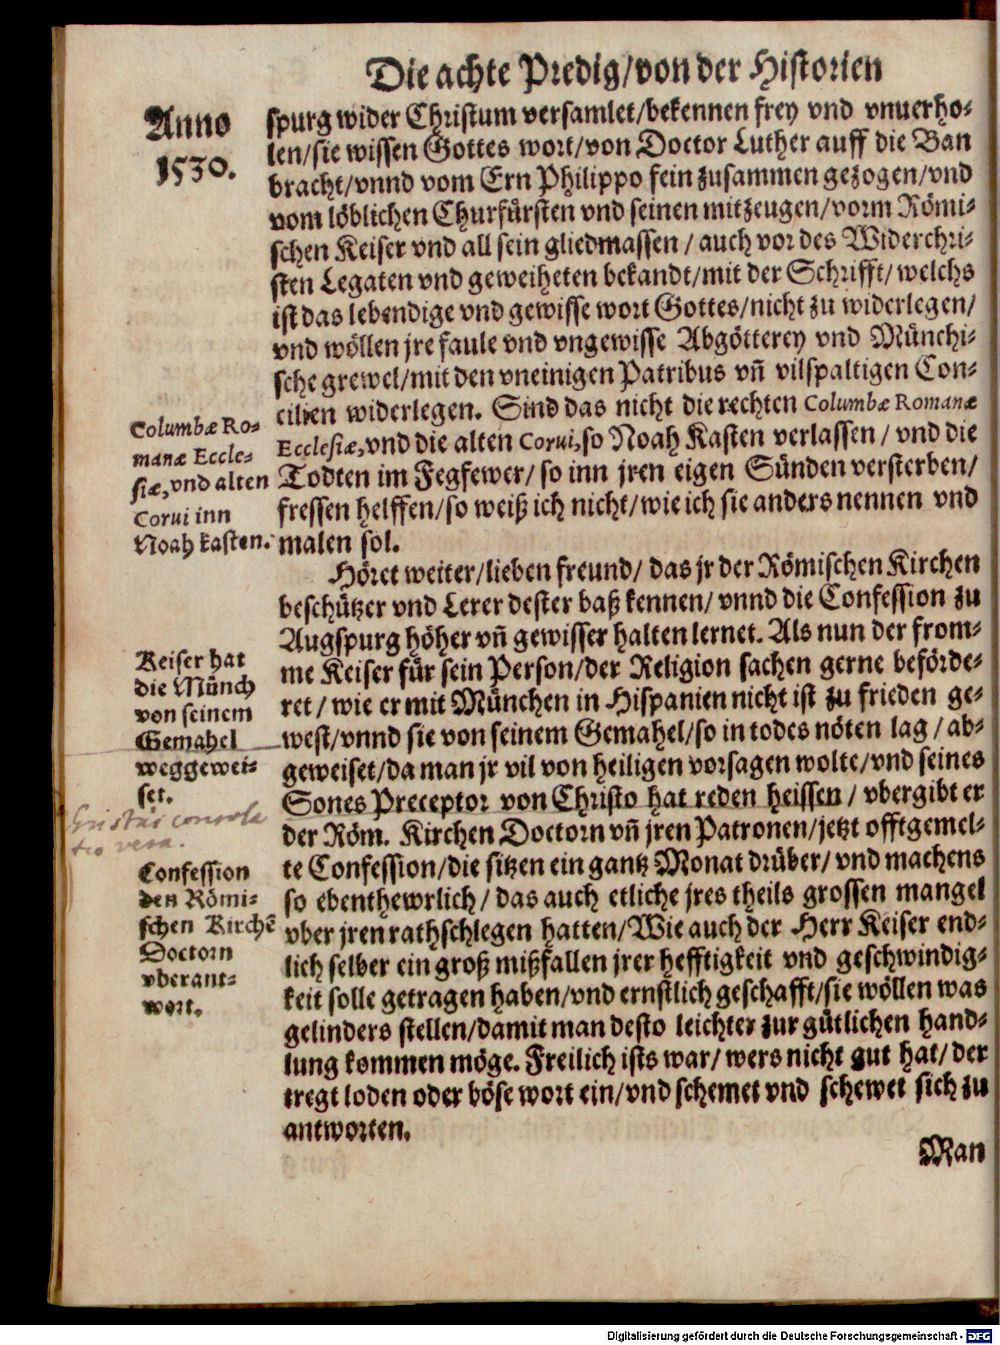 Die achte Predig/von der Historien
Anno
1530.
spurg wider Christum versamlet/bekennen frey vnd vnuerho-
len/sie wissen Gottes wort/von Doctor Luther auff die Ban
bracht/vnnd vom Ern Philippo fein zusammen gezogen/vnd
vom löblichen Churfürsten vnd seinen mitzeugen/vorm Römi-
schen Keiser vnd all sein gliedmassen / auch vor des Widerchri-
sten Legaten vnd geweiheten bekandt/mit der Schrifft/welchs
ist das lebendige vnd gewisse wort Gottes/nicht zu widerlegen/
vnd wöllen jre faule vnd vngewisse Abgötterey vnd Münchi-
sche grewel/mit den vneinigen Patribus vñ vilspaltigen Con-
cilien widerlegen. Sind das nicht die rechten Columbæ Romanæ
Ecclesiæ,vnd die alten Corui,so Noah Kasten verlassen / vnd die
Todten im Fegfewer/ so inn jren eigen Sünden versterben/
fressen helffen/so weiß ich nicht/wie ich sie anders nennen vnd
malen sol.
Columbæ Ro-
manæ Eccle-
siæ,vnd alten
Corui inn
Noah kasten.
Höret weiter/lieben freund/ das jr der Römischen Kirchen
beschützer vnd Lerer dester baß kennen/ vnnd die Confession zu
Augspurg höher vñ gewisser halten lernet. Als nun der from-
me Keiser für sein Person/der Religion sachen gerne beförde-
ret / wie er mit München in Hispanien nicht ist zu frieden ge-
west/vnnd sie von seinem Gemahel/so in todes nöten lag / ab-
geweiset/da man jr vil von heiligen vorsagen wolte/vnd seines
Sones Preceptor von Christo hat reden heissen / vbergibt er
der Röm. Kirchen Doctorn vñ jren Patronen/jetzt offtgemel-
te Confession/die sitzen ein gantz Monat drüber/ vnd machens
so ebenthewrlich / das auch etliche jres theils grossen mangel
vber jren rathschlegen hatten/Wie auch der Herr Keiser end-
lich selber ein groß mißfallen jrer hefftigkeit vnd geschwindig-
keit solle getragen haben/vnd ernstlich geschafft/sie wöllen was
gelinders stellen/damit man desto leichter zur gütlichen hand-
lung kommen möge. Freilich ists war/ wers nicht gut hat/ der
tregt loden oder böse wort ein/vnd schemet vnd schewet sich zu
antworten.
Keiser hat
die Münch
von seinem
Gemahel
weggewei-
set.
Cristus consola
tio vera.
Confession
den Römi-
schen Kirchẽ
Doctorn
vberant-
wort.
Man
Digitalisierung gefördert durch die Deutsche Forschungsgemeinschaft - DFG